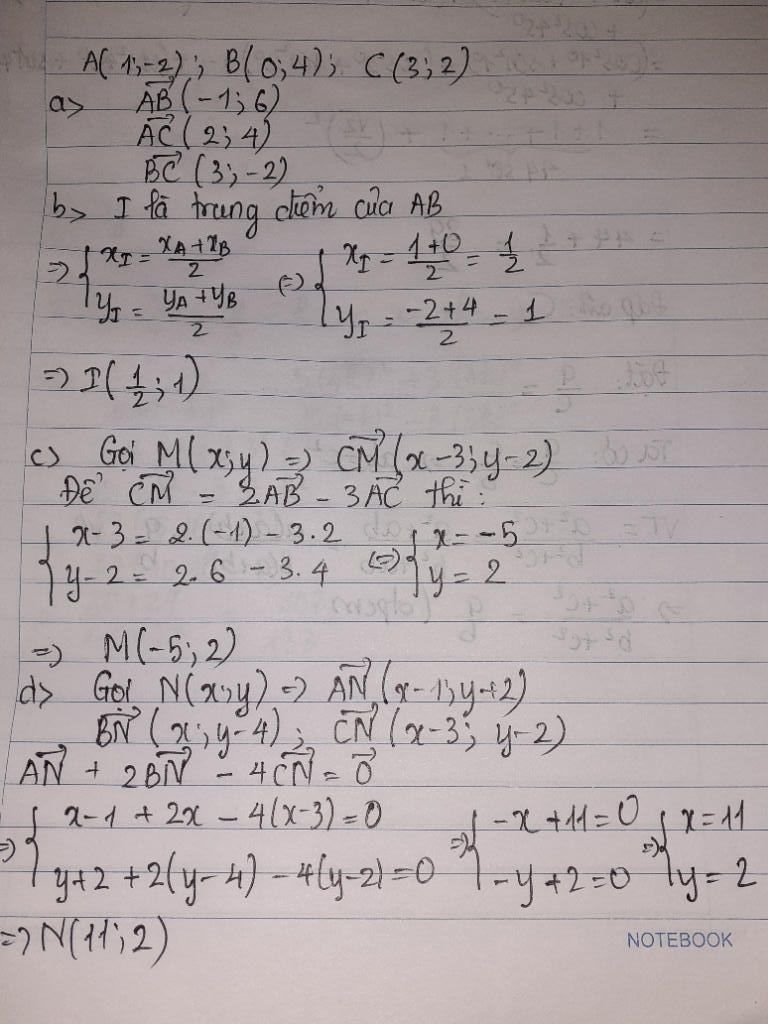 A(1;-2); B(0;4); C(3;2)
a> AB→(-1;6)
AC→(2;4)
BC→(3;-2)
b> I là trung điểm của AB
=> { x_I = (x_A+x_B)/2 (=) { x_I = (1+0)/2 = 1/2
y_I = (y_A+y_B)/2 y_I = (-2+4)/2 = 1
=> I(1/2;1)
c> Gọi M(x;y) => CM→(x-3;y-2)
Để CM→ = 2AB→ - 3AC→ thì:
{ x-3 = 2.(-1) - 3.2 (=) { x = -5
y-2 = 2.6 - 3.4 y = 2
=> M(-5;2)
d> Gọi N(x;y) => AN→(x-1;y+2)
BN→(x;y-4); CN→(x-3; y-2)
AN→ + 2BN→ - 4CN→ = 0→
=> { x-1 + 2x - 4(x-3) = 0 => { -x+11=0 => { x=11
y+2 + 2(y-4) - 4(y-2) = 0 -y+2=0 y=2
=> N(11;2)
NOTEBOOK